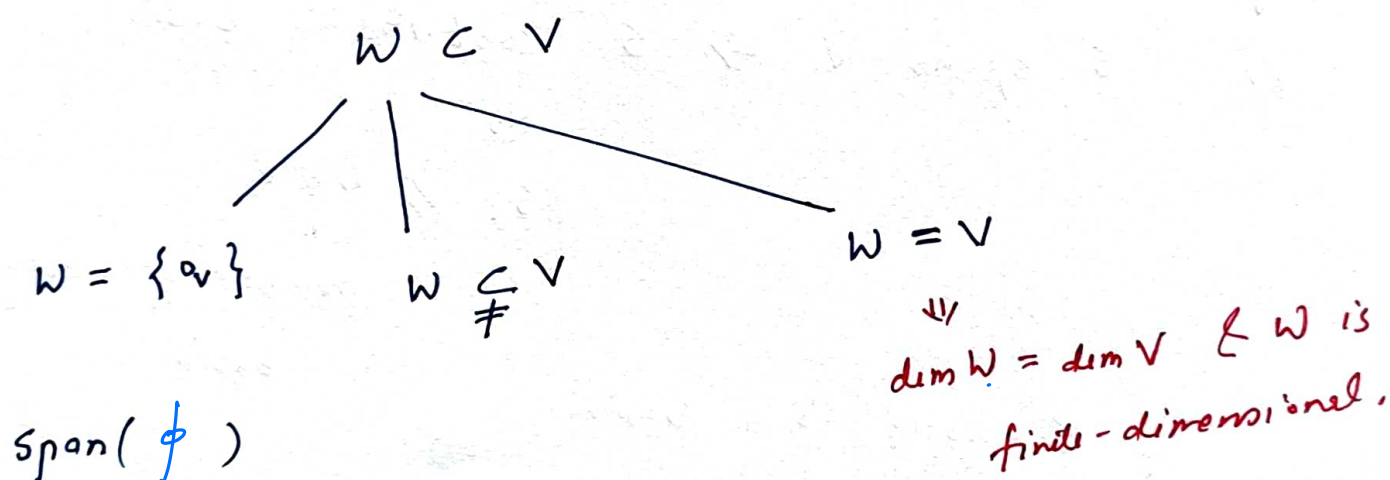 W ⊂ V
W = {0_V}
W ⊊ V
W = V
⇓
dim W = dim V & W is
finite-dimensional.
span( ϕ )